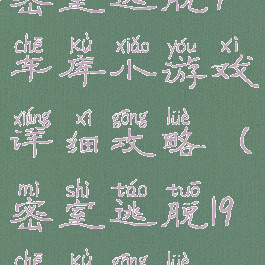 密室逃脱1
chē kù xiǎo yóu xì
车库小游戏
xiáng xì gōng lüè
详细攻略(
mì shì táo tuō
密室逃脱19
chē kù gōng lüè